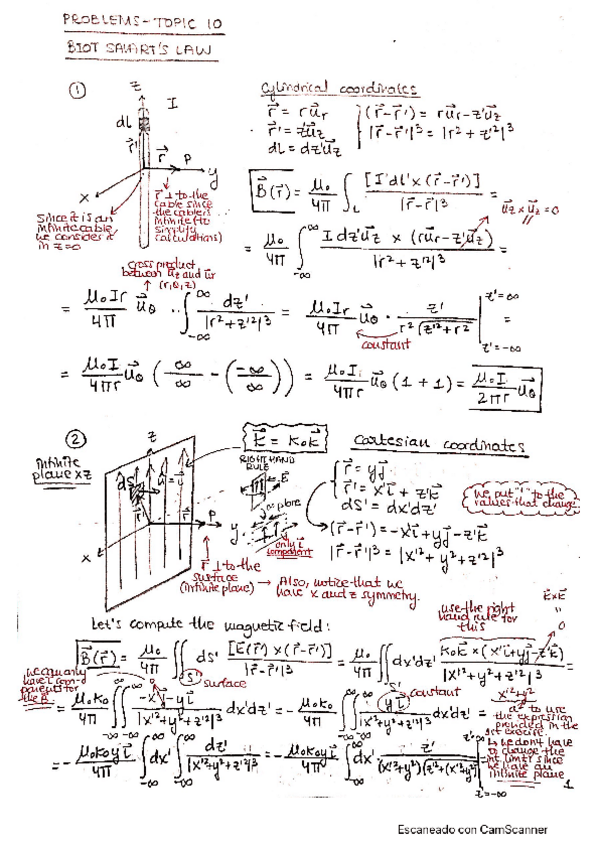 PROBLEMS - TOPIC 10
BIOT SAVART'S LAW
① Cylindrical coordinates
z I
dl
r⃗' r⃗ P y
x
r⃗ = r u⃗r
r⃗' = z' u⃗z
dl = dz' u⃗z
(r⃗ - r⃗') = r u⃗r - z' u⃗z
|r⃗ - r⃗'|³ = |r² + z'²|³
r⃗ ⊥ to the
cable since
the cable is
infinite (to
simplify
calculations)
Since it is an
infinite cable
we consider it
in z=0
B⃗(r⃗) = μ₀/4π ∫L [I dl' × (r⃗ - r⃗')] / |r⃗ - r⃗'|³
u⃗z × u⃗z = 0
= μ₀/4π ∫-∞^∞ I dz' u⃗z × (r u⃗r - z' u⃗z) / |r² + z'²|³ =
cross product
between u⃗z and u⃗r
(r, θ, z)
= μ₀Ir/4π u⃗θ · ∫-∞^∞ dz' / |r² + z'²|³ = μ₀Ir/4π u⃗θ · z' / r²√(z'² + r²) | z'=∞ z'=-∞ =
constant
= μ₀I/4πr u⃗θ (∞/∞ - (-∞/∞)) = μ₀I/4πr u⃗θ (1 + 1) = μ₀I/2πr u⃗θ
② K⃗ = K₀k⃗ Cartesian coordinates
infinite
plane xz
z
dS'
r⃗' r⃗ P y
x
RIGHT HAND
RULE
∞ plane
only i⃗
component
r⃗ = y j⃗
r⃗' = x' i⃗ + z' k⃗
dS' = dx' dz'
(r⃗ - r⃗') = -x' i⃗ + y j⃗ - z' k⃗
|r⃗ - r⃗'|³ = |x'² + y² + z'²|³
We put " ' " to the
values that change.
r⃗ ⊥ to the
surface
(infinite plane) → Also, notice that we
have x and z symmetry.
Let's compute the magnetic field:
use the right
hand rule for
this
k⃗ × k⃗
0
B⃗(r⃗) = μ₀/4π ∫∫S' dS' [K⃗(r⃗') × (r⃗ - r⃗')] / |r⃗ - r⃗'|³ = μ₀/4π ∫∫S' dx' dz' K₀k⃗ × (x' i⃗ + y j⃗ - z' k⃗) / |x'² + y² + z'²|³ =
surface
we can only
have i⃗ com-
ponents for
the B⃗
= μ₀K₀/4π ∫-∞^∞ ∫-∞^∞ -x' j⃗ - y i⃗ / |x'² + y² + z'²|³ dx' dz' = - μ₀K₀/4π ∫-∞^∞ ∫-∞^∞ y i⃗ / |x'² + y² + z'²|³ dx' dz' =
constant
x'² + y²
a² to use
the expression
provided in the
1st exercise.
= - μ₀K₀y i⃗/4π ∫-∞^∞ dx' ∫-∞^∞ dz' / |x'² + y² + z'²|³ = - μ₀K₀y i⃗/4π ∫-∞^∞ dx' z' / (x'² + y²)√(z'² + (x'² + y²)) | z'=∞ z'=-∞
we don't have
to change the
int. limits since
we have an
infinite plane
1
Escaneado con CamScanner